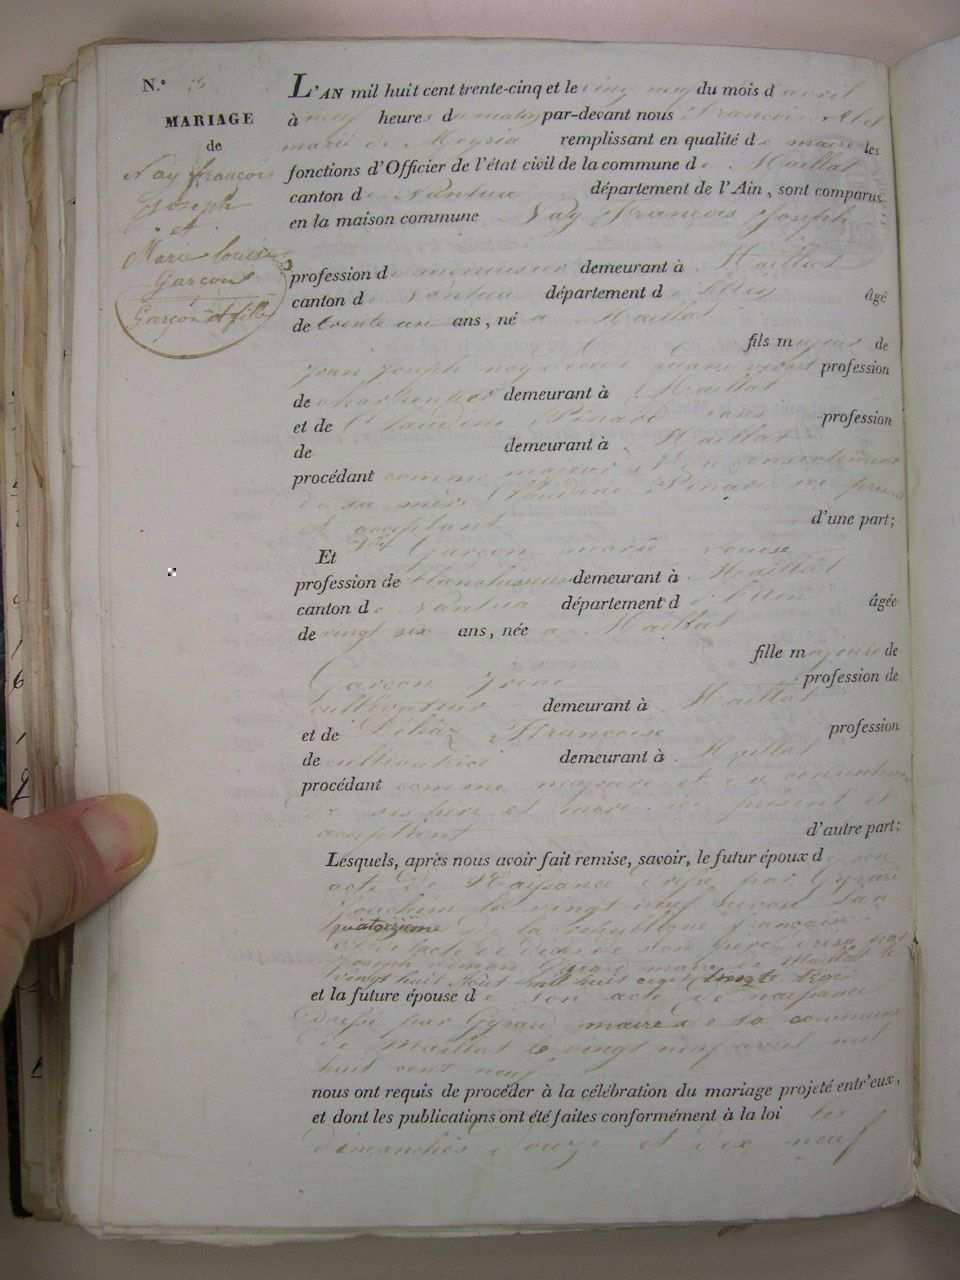 N.° 3
MARIAGE
de
Nay françois
Joseph
et
Marie louise
Garçon
Garçon et fille
L'AN mil huit cent trente-cinq et le du mois d avril
à neuf heures du matin par-devant nous François
maire de Meyria remplissant en qualité de maire les
fonctions d'Officier de l'état civil de la commune de Maillat
canton de Nantua département de l'Ain, sont comparus
en la maison commune Nay François Joseph
profession de menuisier demeurant à Maillat
canton de Nantua département de l'Ain âgé
de trente un ans, né à Maillat
fils majeur de
Jean Joseph nay quand vivait profession
de charpentier demeurant à Maillat
et de Claudine Pinard sans profession
de demeurant à Maillat
procédant comme majeur et du consentement
de sa mère Claudine Pinard ici présente
et acceptant d'une part;
Et Garçon marie louise
profession de blanchisseuse demeurant à Maillat
canton de Nantua département de l'Ain âgée
de vingt six ans, née à Maillat
fille majeure de
Garçon profession de
cultivateur demeurant à Maillat
et de Françoise profession
de cultivatrice demeurant à Maillat
procédant comme majeure et du consentement
de ses père et mère ici présent et
acceptent d'autre part;
Lesquels, après nous avoir fait remise, savoir, le futur époux de son
acte de Naissance par
Joachim le vingt neuf l'an
quatorzième de la république française
et l'acte de décès de son père par
Joseph maire de Maillat le
vingt huit Août mil huit cent trente trois
et la future épouse de son acte de naissance
par maire de la commune
de Maillat le vingt cinq avril mil
huit cent neuf
nous ont requis de procéder à la célébration du mariage projeté entr'eux,
et dont les publications ont été faites conformément à la loi les
dimanches douze et dix neuf